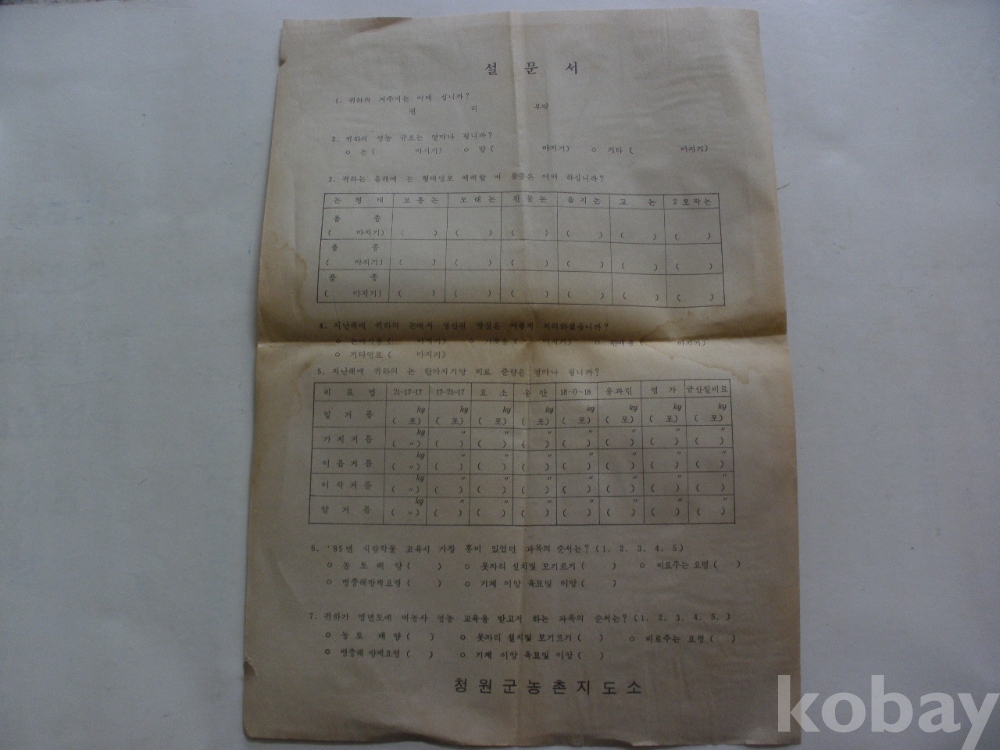 설 문 서
1. 귀하의 거주지는 어데 십니까?
면 리 부락
2. 귀하의 영농 규모는 얼마나 됩니까?
ㅇ 논( 마지기) ㅇ 밭( 마지기) ㅇ 기타( 마지기)
3. 귀하는 올해에 논 형태별로 재배할 벼 품종은 어떠 하십니까?
논 형 태 보통논 모래논 찬물논 습지논 고 논 2모작논
품 종
( 마지기) ( ) ( ) ( ) ( ) ( ) ( )
품 종
( 마지기) ( ) ( ) ( ) ( ) ( ) ( )
품 종
( 마지기) ( ) ( ) ( ) ( ) ( ) ( )
4. 지난해에 귀하의 논에서 생산된 볏짚은 어떻게 처리하였습니까?
( 마지기) ( 마지기)
ㅇ 기타민료( 마지기)
5. 지난해에 귀하의 논 한마지기당 비료 준량은 얼마나 됩니까?
비 료 명 21-17-17 17-21-17 요 소 유 안 18-0-18 용과린 염 가 규산질비료
밑 거 름 kg kg kg kg kg kg kg
( 포) ( 포) ( 포) ( 포) ( 포) ( 포) ( 포) ( 포)
가지거름 kg 〃 〃 〃 〃 〃 〃 〃
( 〃) ( ) ( ) ( ) ( ) ( ) ( ) ( )
이삭거름 kg 〃 〃 〃 〃 〃 〃
( 〃) ( ) ( ) ( ) ( ) ( ) ( ) ( )
알 거 름 kg 〃 〃 〃 〃 〃 〃 〃
( 〃) ( ) ( ) ( ) ( ) ( ) ( ) ( )
6. '85년 식량작물 교육시 가장 흥미 있었던 과목의 순서는? (1. 2. 3. 4. 5)
ㅇ 농 토 배 양( ) ㅇ 못자리 설치및 모기르기( ) ㅇ 비료주는 요령( )
ㅇ 병충해방제요령( ) ㅇ 기계 이앙 육묘및 이앙( )
7. 귀하가 명년도에 벼농사 영농 교육을 받고저 하는 과목의 순서는? (1. 2. 3. 4. 5.)
ㅇ 농 토 배 양( ) ㅇ 못자리 설치및 모기르기( ) ㅇ 비료주는 요령( )
ㅇ 병충해 방제요령( ) ㅇ 기계 이앙 육묘및 이앙( )
청원군농촌지도소
kobay